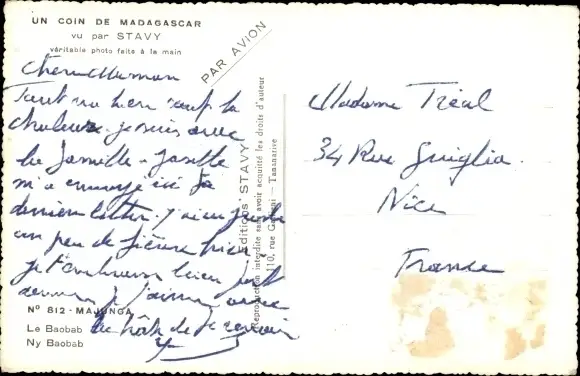 UN COIN DE MADAGASCAR
vu par STAVY
véritable photo faite à la main
PAR AVION
Chère Maman
Tout va bien sauf la
chaleur. je suis avec
la famille - Josette
m'a envoyé ici ta
dernière lettre. j'ai eu juste
un peu de fièvre hier
je t'embrasse bien fort
hâte de te revoir
Nº 812 - MAJUNGA
Le Baobab
Ny Baobab
Editions STAVY
Reproduction interdite sans avoir acquitté les droits d'auteur
110, rue - Tananarive
Madame Tréal
34 Rue Guiglia.
Nice
France